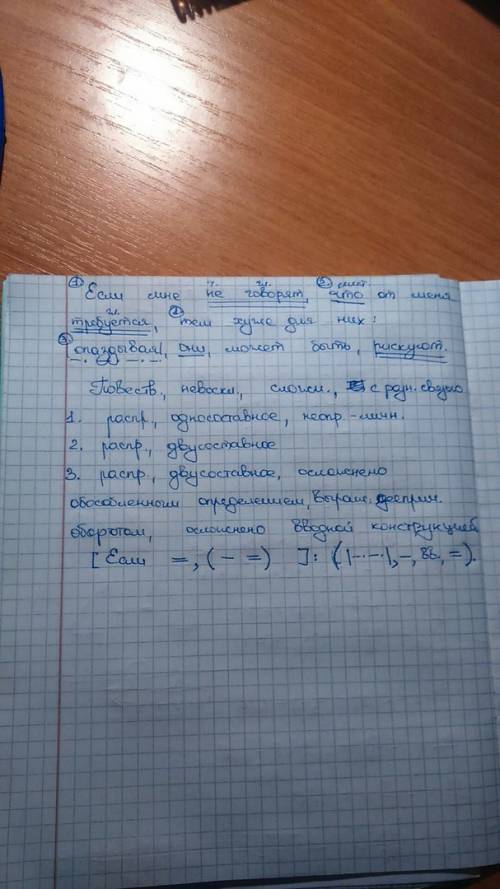 ① Если мне не говорят, ② что от меня
требуется, ① тем хуже для них:
③ опаздывая, они, может быть, рискуют.
Повеств, невоскл, сложн., с разн. связью
1. распр., односоставное, неопр.-личн.
2. распр., двусоставное
3. распр., двусоставное, осложнено
обособленным определением, выраж. дееприч.
оборотом, осложнено вводной конструкцией
[Если =, (– =) ]: (|–·–·|, –, вв, =).